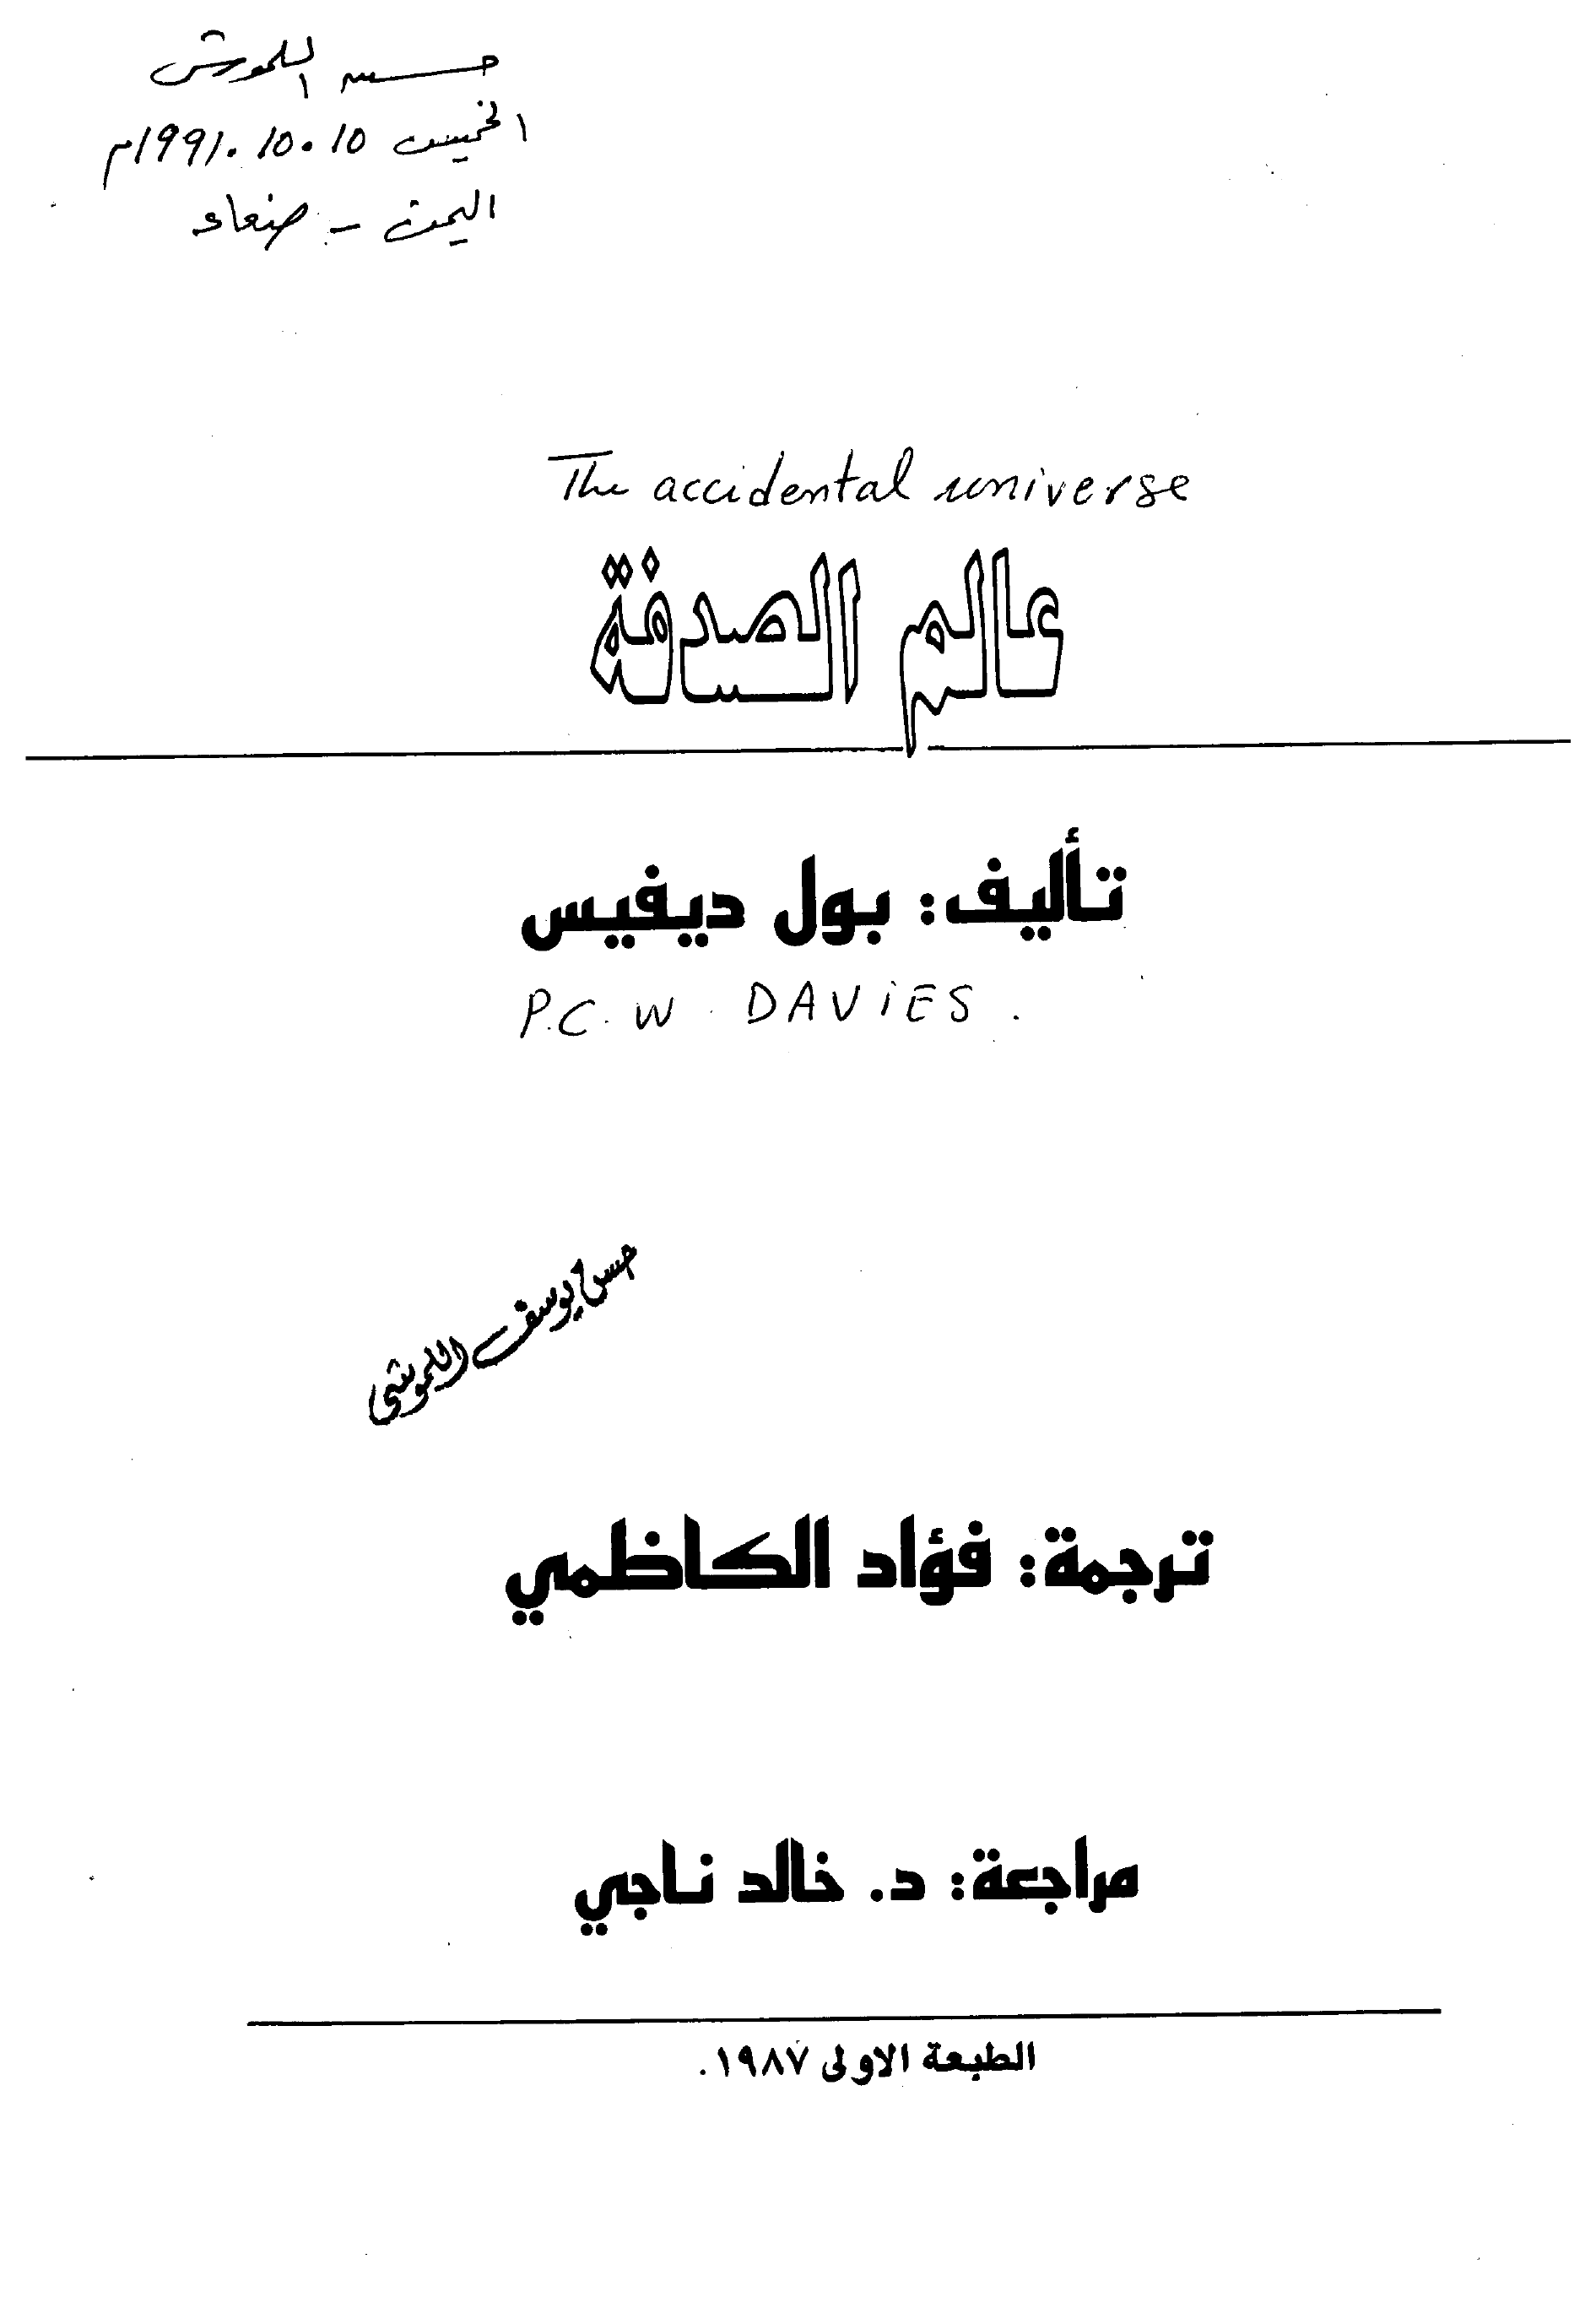 حسن اللموشي
الخميس
اليمن - صنعاء
The accidental universe
عالم الصدفة
تأليف: بول ديفيس
P.C.W. DAVIES.
حسن يوسف اللموشي
ترجمة: فؤاد الكاظمي
مراجعة: د. خالد ناجي
الطبعة الاولى ١٩٨٧.